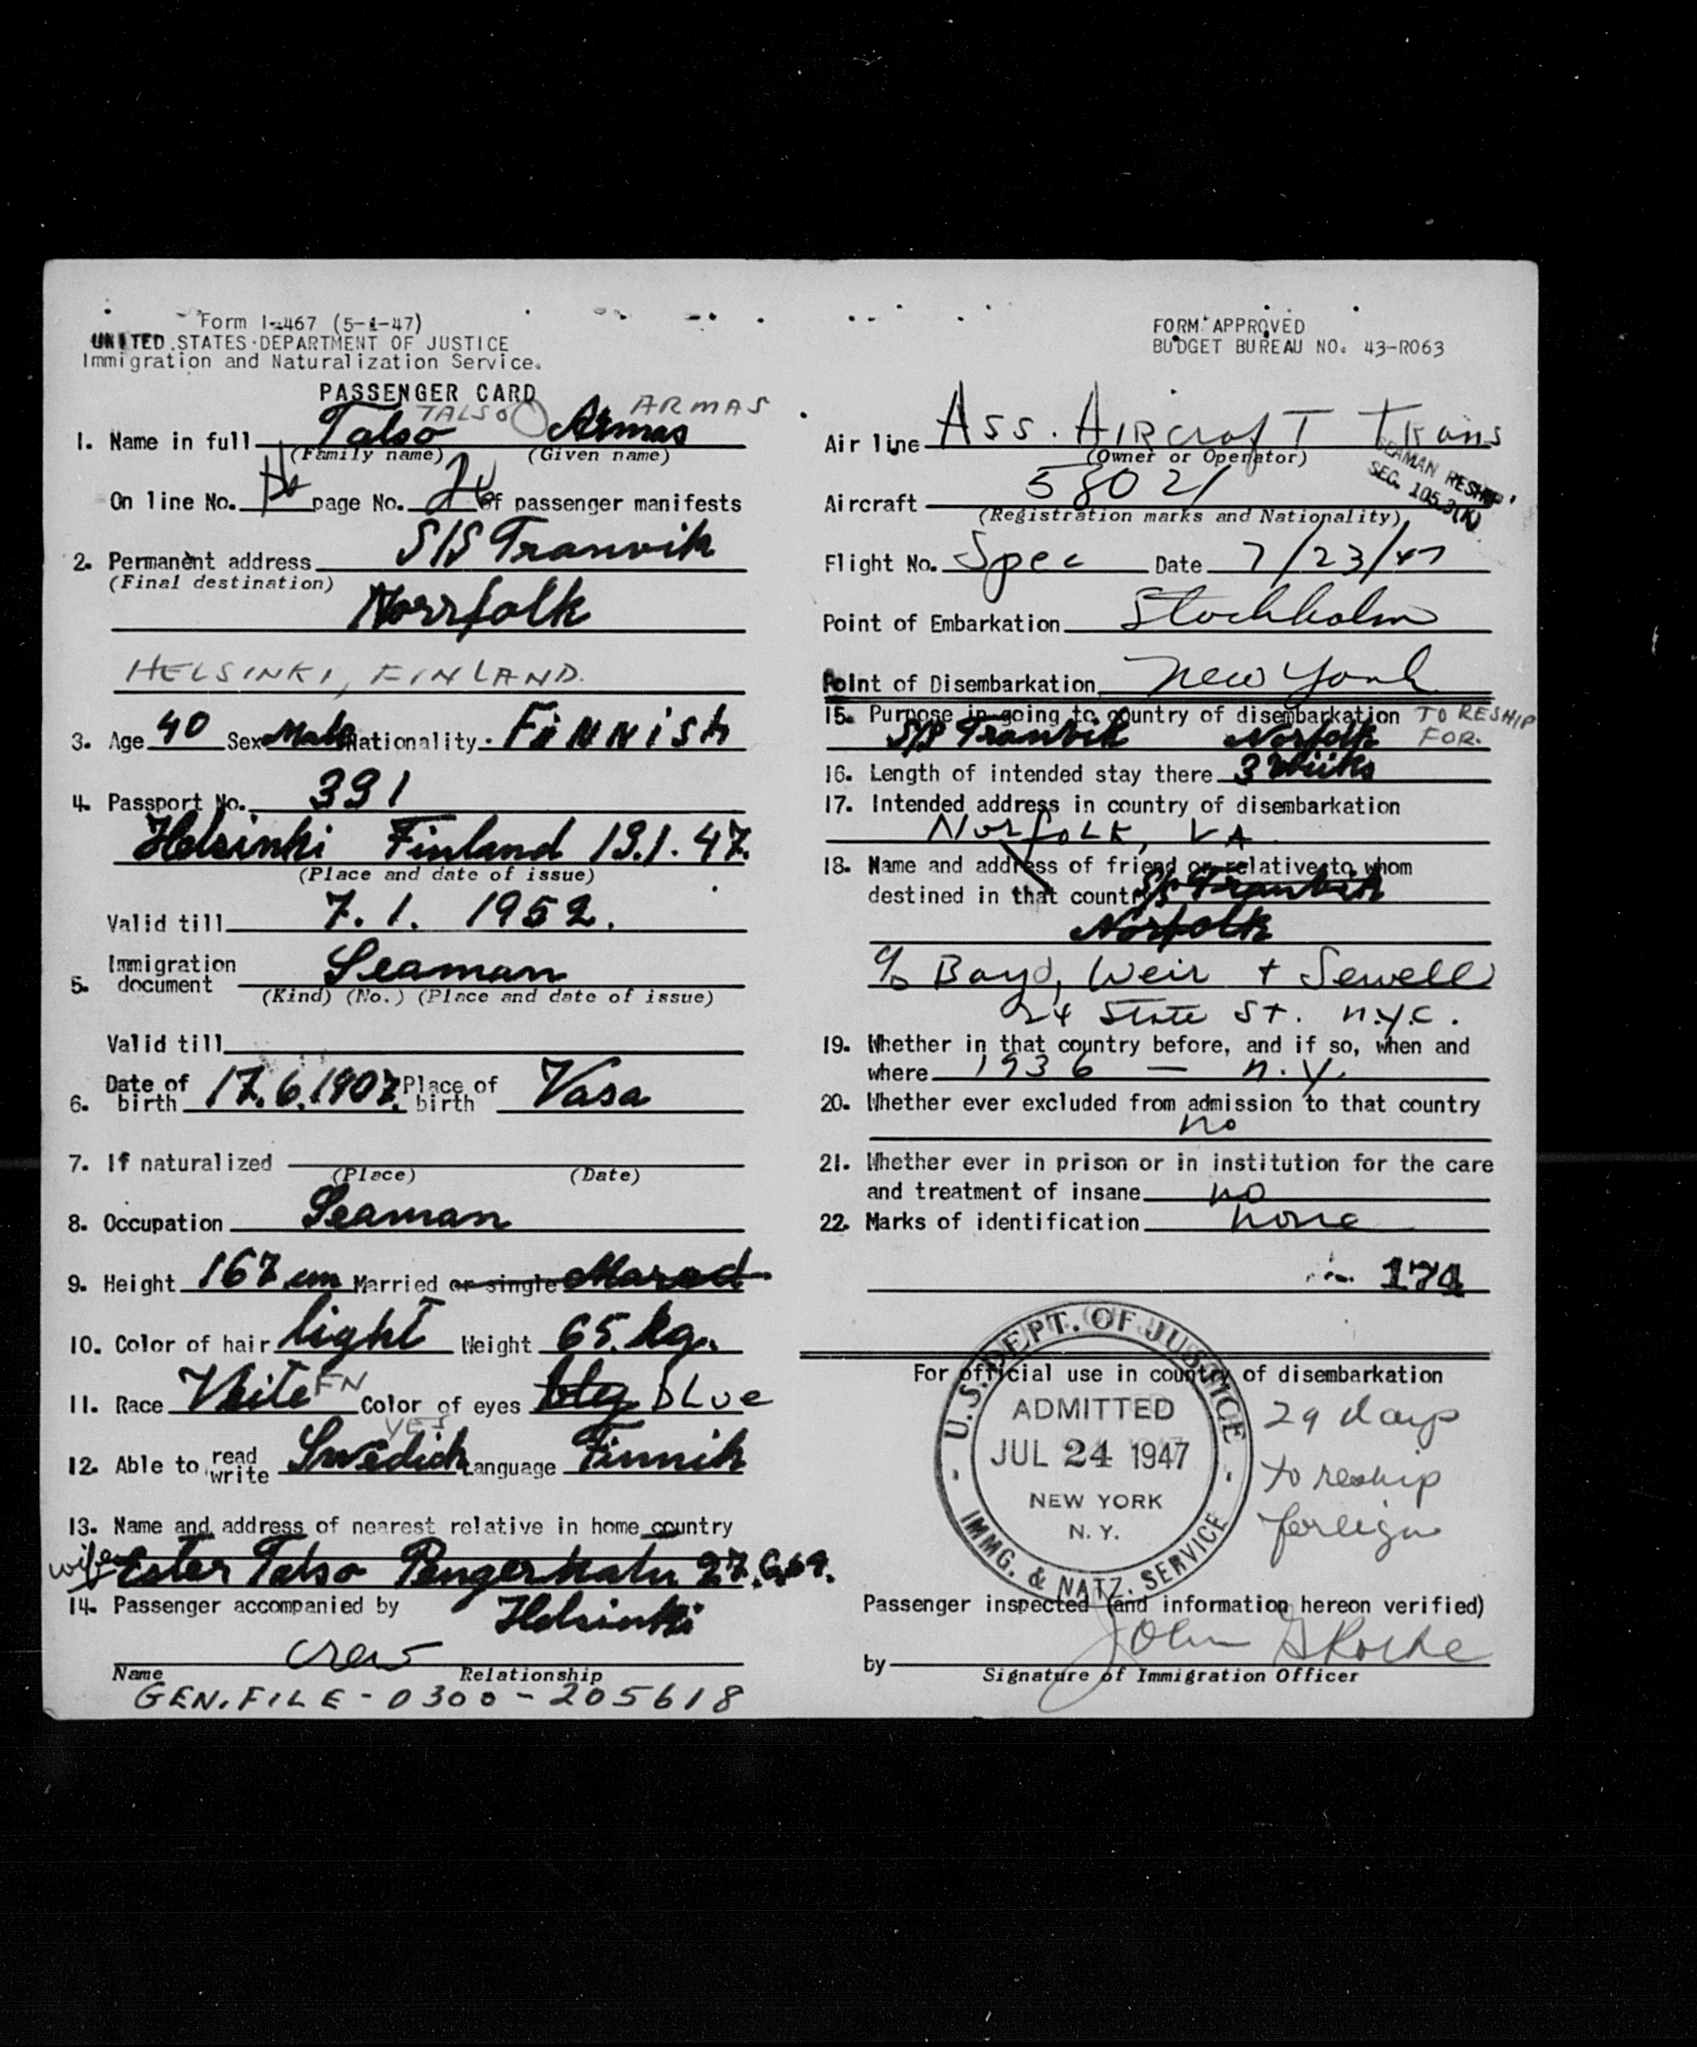 Form I-467 (5-1-47)
UNITED STATES DEPARTMENT OF JUSTICE
Immigration and Naturalization Service.
PASSENGER CARD
TALSO ARMAS
1. Name in full Talso Armas
(Family name) (Given name)
On line No. page No. of passenger manifests
2. Permanent address S/S Tranvik
(Final destination)
Norrfolk
HELSINKI, FINLAND.
3. Age 40 Sex Male Nationality FiNNiSh
4. Passport No. 391
Helsinki Finland 19.1.47.
(Place and date of issue)
Valid till 7.1. 1952.
5. Immigration document Seaman
(Kind) (No.) (Place and date of issue)
Valid till
6. Date of birth 17.6.1907. Place of birth Vasa
7. If naturalized
(Place) (Date)
8. Occupation Seaman
9. Height 167 cm Married or single Mared
10. Color of hair light Weight 65. kg.
11. Race Vhite FN Color of eyes bLue
YES
12. Able to read write Swedich Language Finnih
13. Name and address of nearest relative in home country
wife Ester Talso Pengerkatu 27.C.69.
14. Passenger accompanied by Helsinki
crew
Name Relationship
GEN. FILE - 0300 - 205618
FORM APPROVED
BUDGET BUREAU NO. 43-R063
Air line Ass. AIRcrafT TRans
(Owner or Operator)
SEAMAN RESHIP
SEC. 105.3(K)
Aircraft 58021
(Registration marks and Nationality)
Flight No. Spec Date 7/23/47
Point of Embarkation Stockholm
Point of Disembarkation New York
15. Purpose in going to country of disembarkation TO RESHIP
S/S Tranvik Norfolk FOR.
16. Length of intended stay there 3 Wiiks
17. Intended address in country of disembarkation
Norfolk, VA
18. Name and address of friend or relative to whom
destined in that country S/S Tranvik
Norfolk
c/o Boyd, Weir + Sewell
24 State St. N.Y.C.
19. Whether in that country before, and if so, when and
where 1936 — N.Y.
20. Whether ever excluded from admission to that country
no
21. Whether ever in prison or in institution for the care
and treatment of insane no
22. Marks of identification none
174
For official use in country of disembarkation
U.S. DEPT. OF JUSTICE
ADMITTED
JUL 24 1947
NEW YORK
N. Y.
IMMG. & NATZ. SERVICE
29 days
to reship
foreign
Passenger inspected (and information hereon verified)
by John
Signature of Immigration Officer